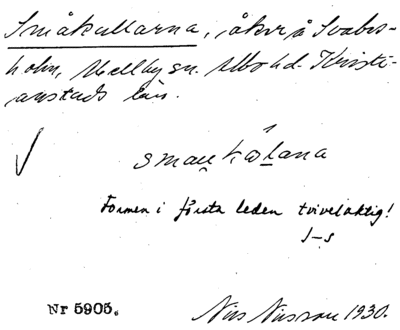 Småkullarna, åker å Svabes-
holm, Mellby sn. Albo hd. Kristi-
anstads län.
smau kølana
Formen i första leden tvivelaktig!
J–s
Nr 5905.
Nils Nilsson 1930.